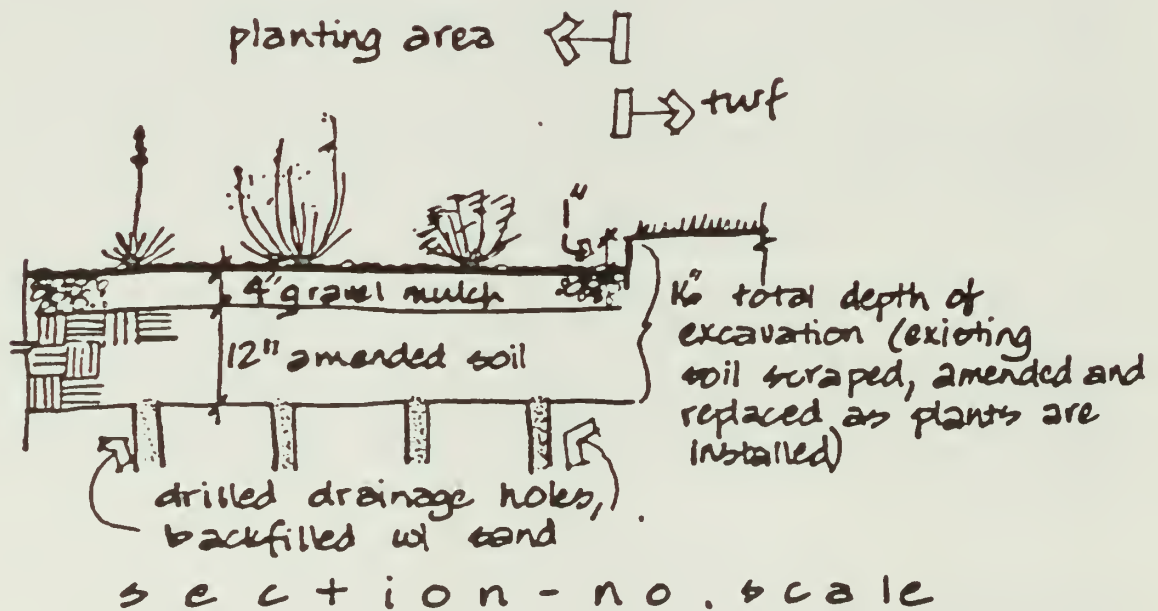 planting area
turf
1"
4" gravel mulch
12" amended soil
16" total depth of
excavation (existing
soil scraped, amended and
replaced as plants are
installed)
drilled drainage holes,
backfilled w/ sand
section - no. scale